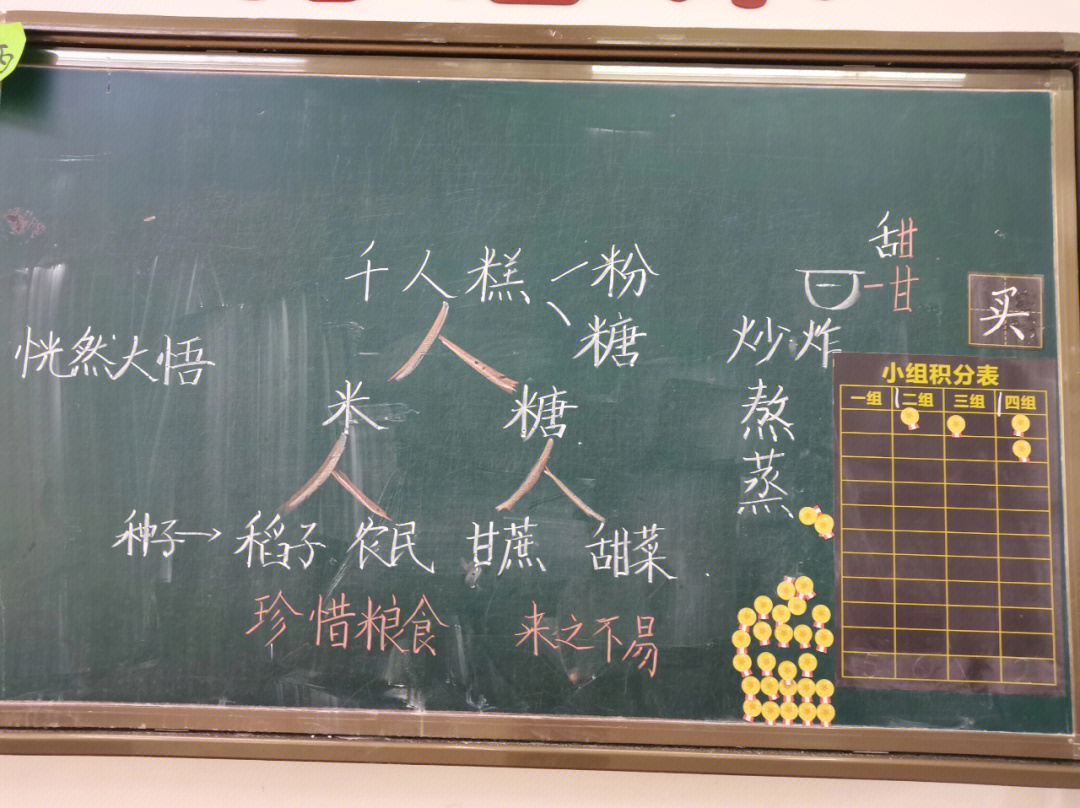 甜
千人糕 粉
甘
买
糖
恍然大悟
炒 炸
小组积分表
一组 二组 三组 四组
米 糖
熬
蒸
种子→ 稻子 农民 甘蔗 甜菜
珍惜粮食 来之不易